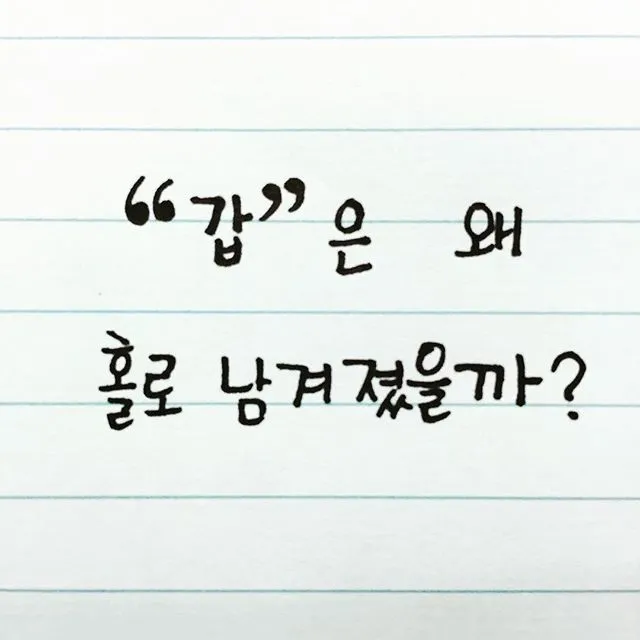 “갑”은 왜
홀로 남겨졌을까?